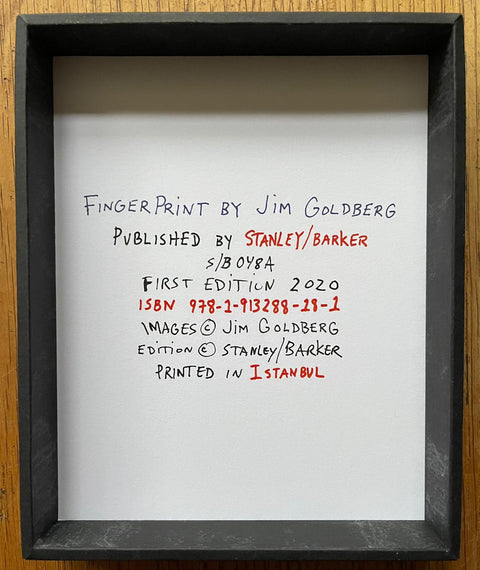 FINGERPRINT BY JIM GOLDBERG
PUBLISHED BY STANLEY/BARKER
S/B 048A
FIRST EDITION 2020
ISBN 978-1-913288-18-1
IMAGES © JIM GOLDBERG
EDITION © STANLEY/BARKER
PRINTED IN ISTANBUL